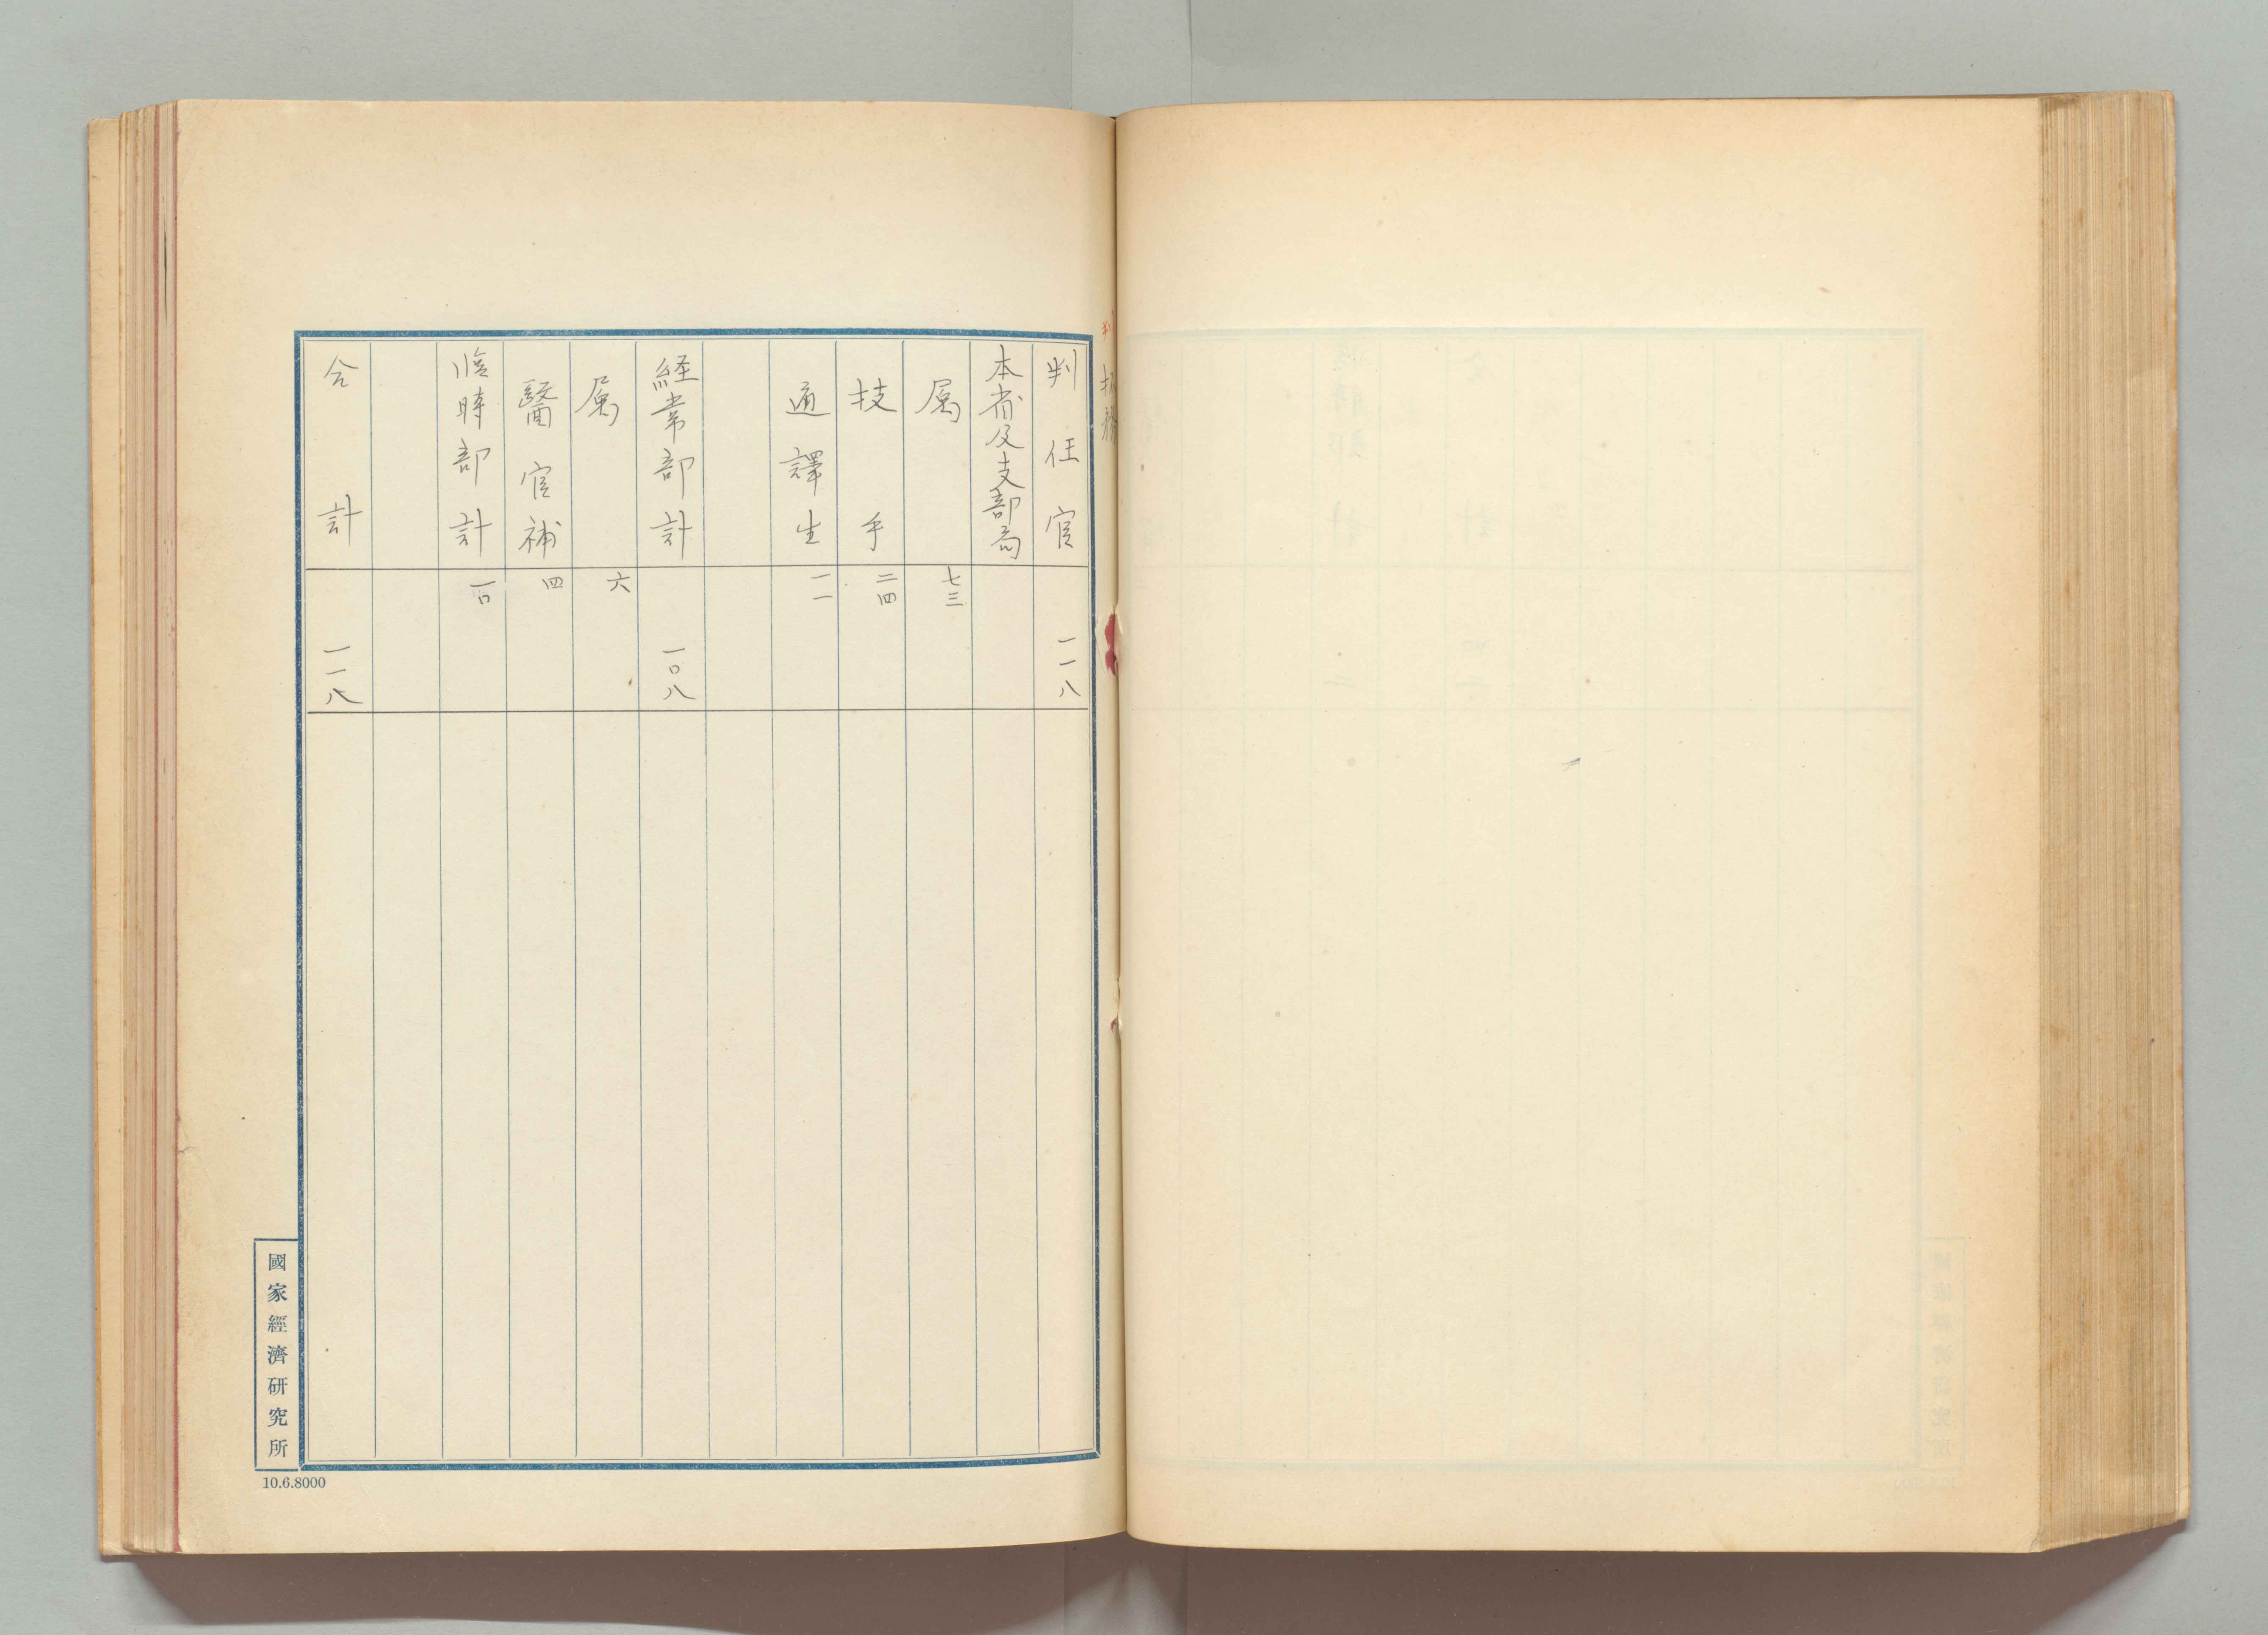 判任官 一一八
本省及支部局
属 七三
技手 二四
通譯生 一一
経常部計 一〇八
属 六
醫官補 四
臨時部計 一〇
合計 一一八
國家經濟研究所
10.6.8000